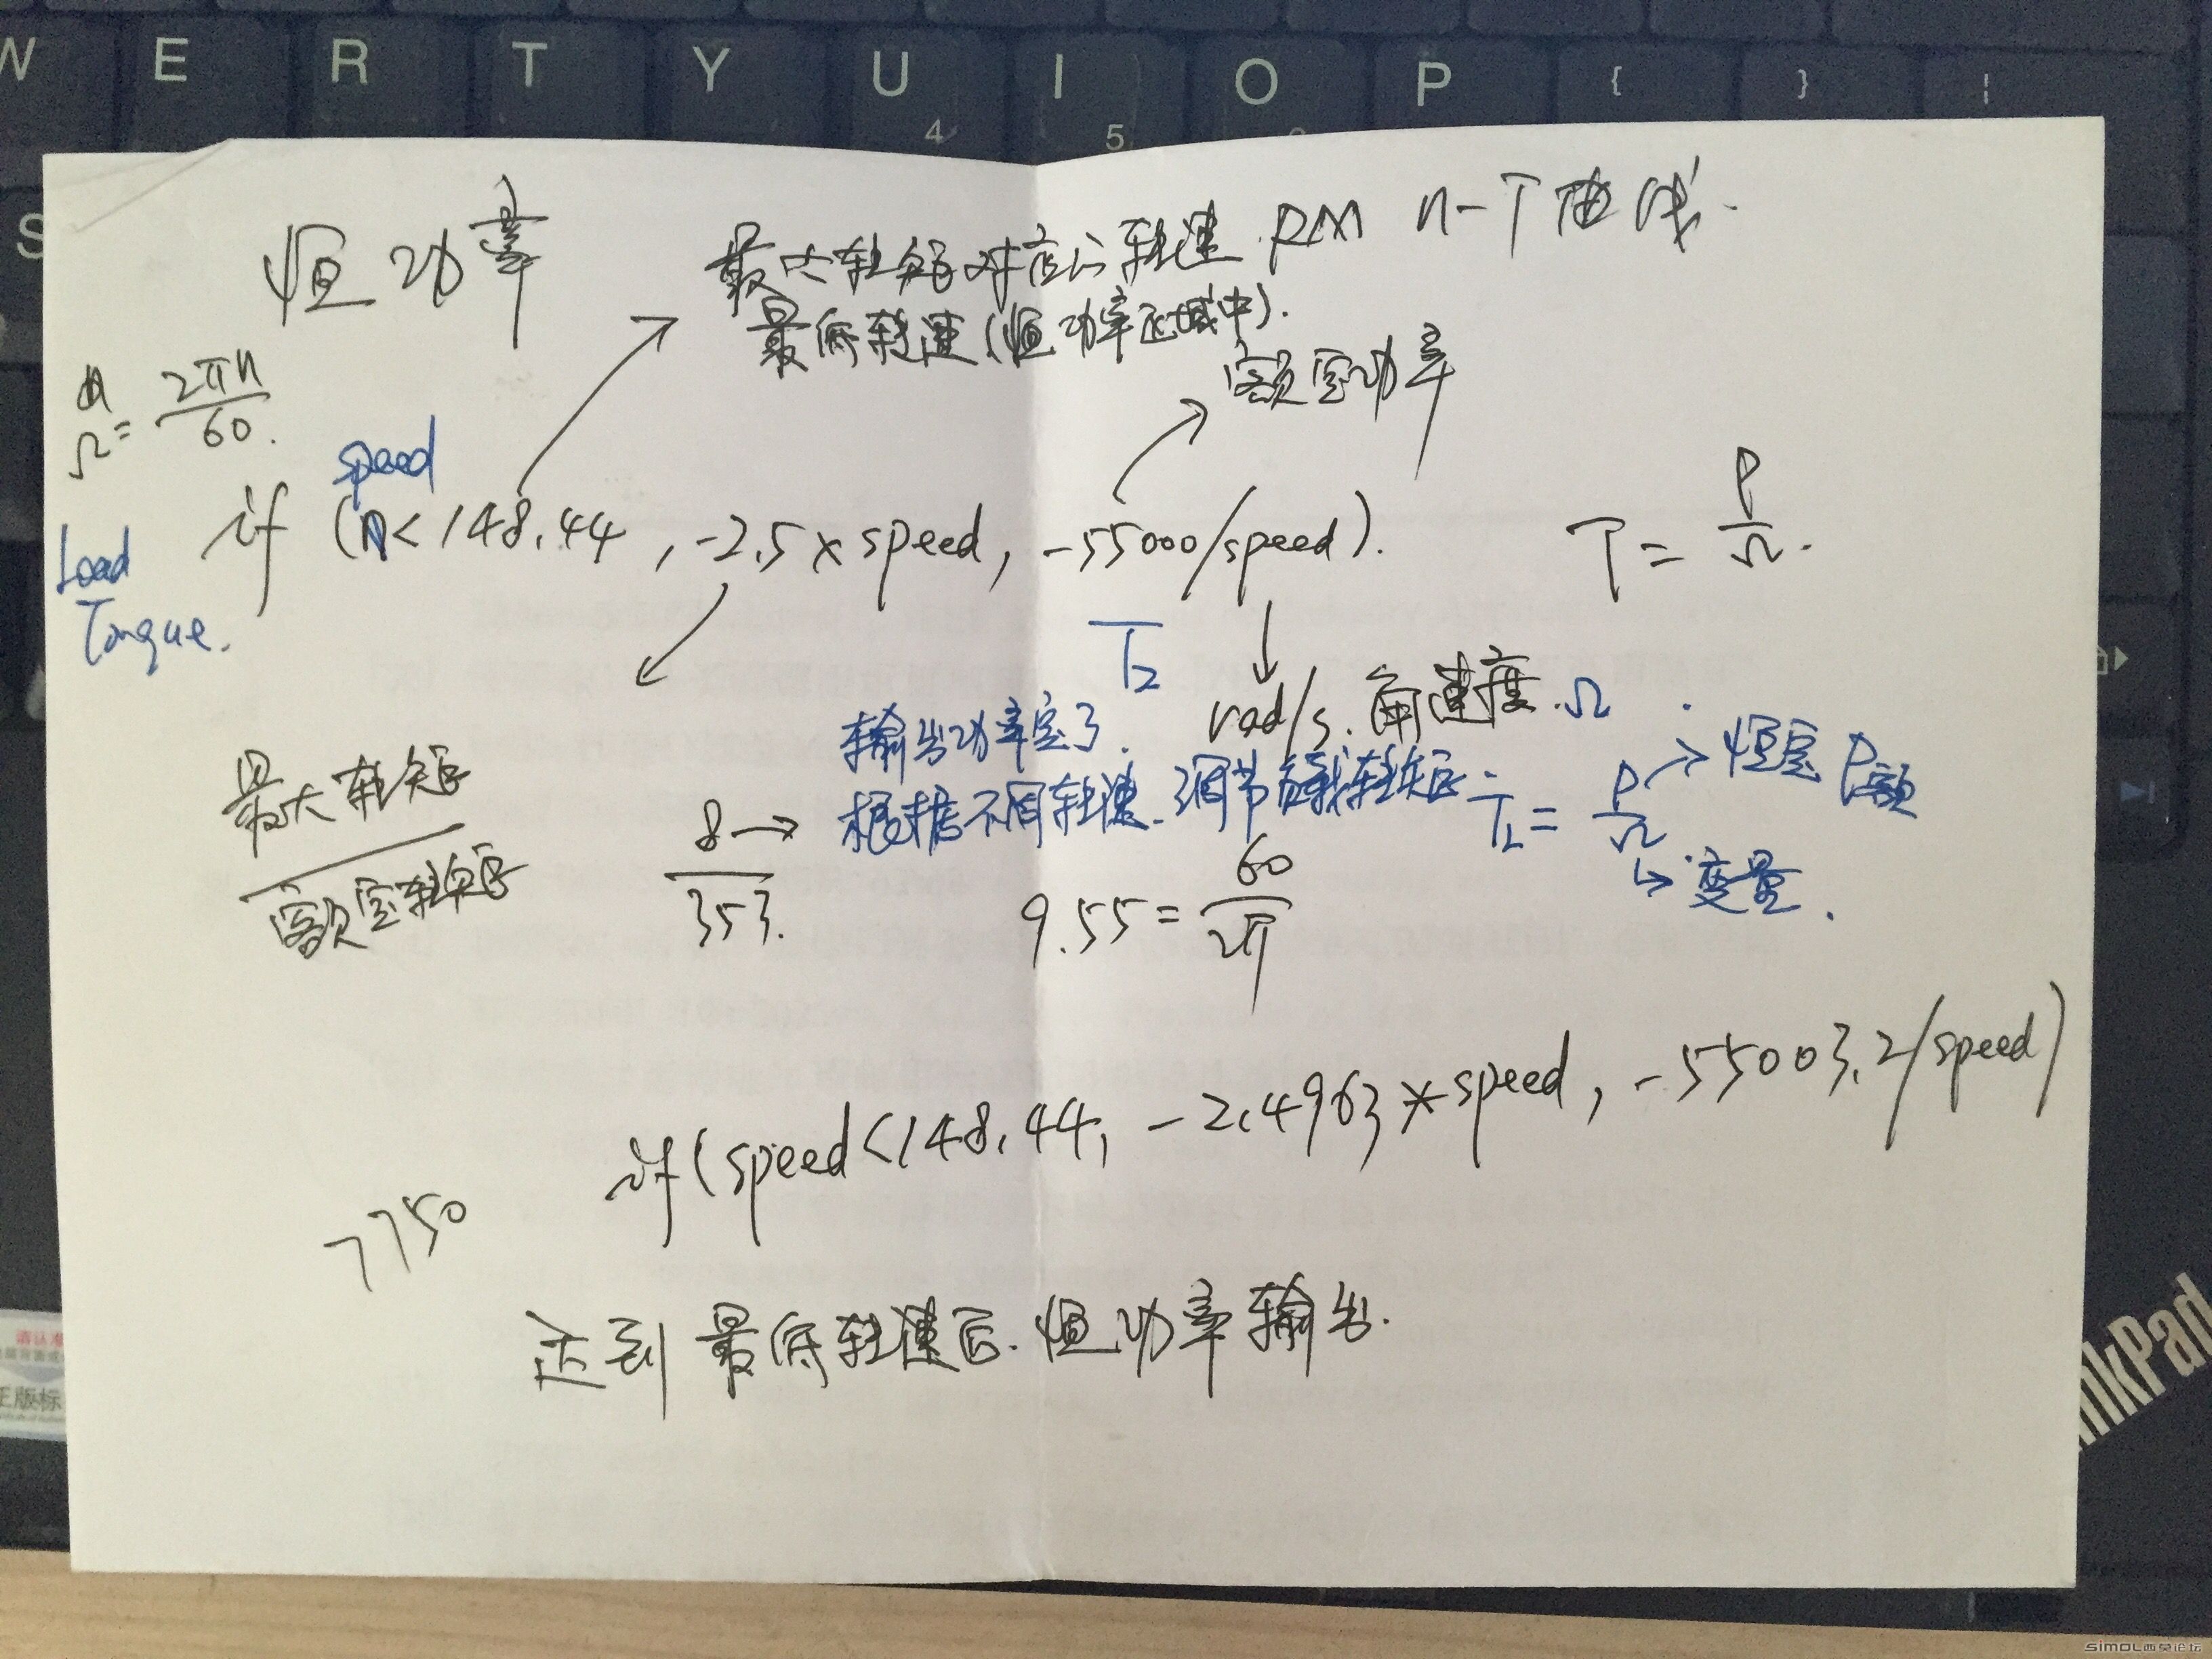 W E R T Y U I O P { } ¦
4 5
S
恒功率
最大转矩对应的转速 RM n-T曲线.
最低转速(恒功率区域中).
额定功率
Ω = 2πn/60.
speed
if (n<148.44, -2.5×speed, -55000/speed).
T = P/Ω.
Load
Torque.
T2
rad/s. 角速度.Ω
输出功率定了.
根据不同转速.调节负载转矩
TL = P/Ω
恒定 P额
变量.
最大转矩
额定转矩
8
353.
9.55 = 60/2π
if(speed<148.44, -2.4963*speed, -55003.2/speed)
7750
达到最低转速后.恒功率输出.
正版标
nkPad
simol西莫论坛